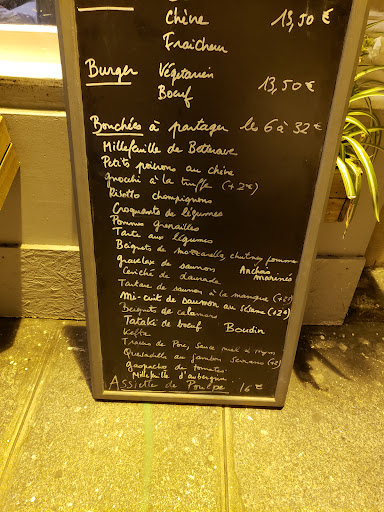 Chèvre 13,50 €
Fraîcheur
Burger Végétarien
Boeuf 13,50 €
Bouchées à partager les 6 à 32 €
Millefeuille de Betterave
Petits poivrons au chèvre
gnocchi à la truffe (+2€)
Risotto champignons
Croquants de légumes
Pommes grenailles
Tarte aux légumes
Beignets de mozzarella, chutney pomme
gravelax de saumon Anchois marinés
Ceviche de daurade
Tartare de saumon à la mangue (+2€)
Mi-cuit de saumon au sésame (+2€)
Beignets de calamars
Tataki de boeuf Boudin
Kefta
Travers de Porc, sauce miel & thym
Quesadillas au jambon Serrano (+2)
gaspacho de tomates
Millefeuille d'aubergine
Assiette de Poulpe 16 €